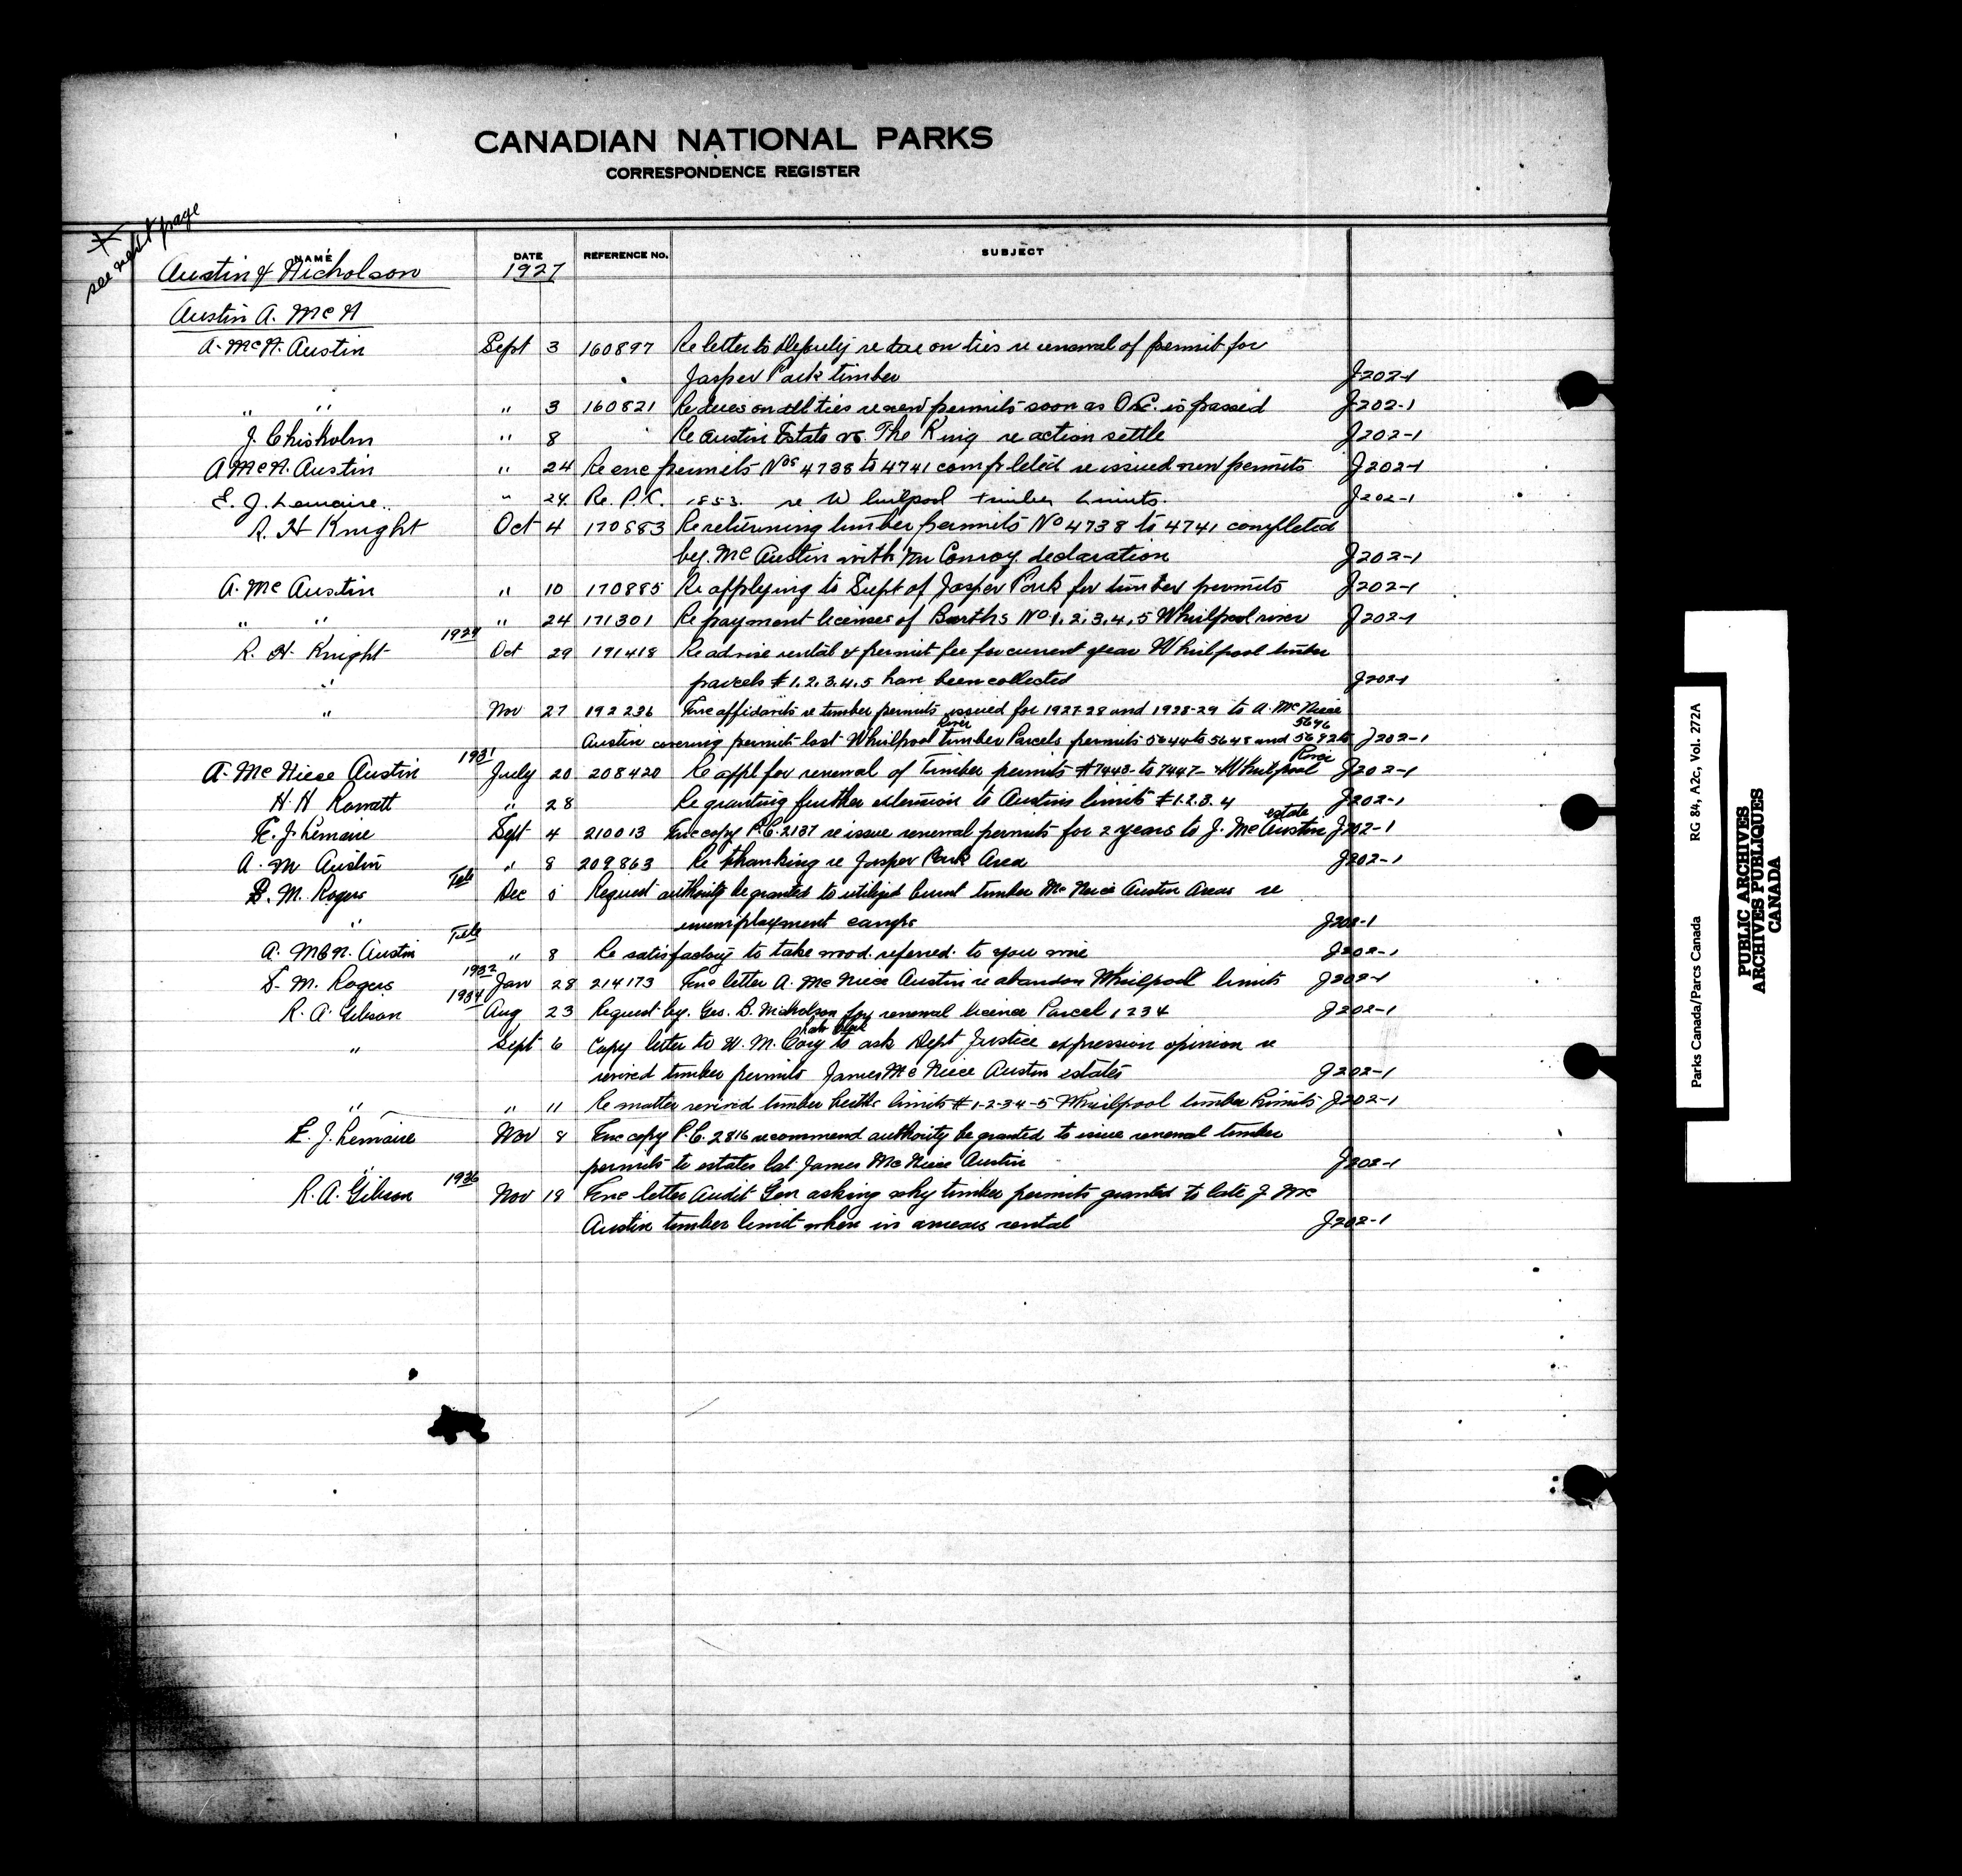 CANADIAN NATIONAL PARKS
CORRESPONDENCE REGISTER
* see next page
NAME DATE REFERENCE NO. SUBJECT
Austin & Nicholson 1927
Austin A. McN
A. McN. Austin Sept 3 160897 Re letter to Deputy re due on ties re renewal of permit for
Jasper Park timber J202-1
" " " 3 160821 Re dues on ties renew permits soon as O.C. is passed J202-1
J. Chisholm " 8 Re Austin Estate vs. The King re action settle J202-1
A McN. Austin " 24 Re enc permits Nos 4738 to 4741 completed re issued new permits J202-1
E. J. Lemaire. " 24 Re. P.C. 1853. re Whirlpool timber Limits. J202-1
R. H Knight Oct 4 170883 Re returning timber permits No 4738 to 4741 completed
by. Mc Austin with Mr Conroy declaration J202-1
A. Mc Austin " 10 170885 Re applying to Supt of Jasper Park for timber permits J202-1
" " " 24 171301 Re payment licenses of Berths No 1, 2, 3, 4, 5 Whirlpool river J202-1
R. H. Knight 1929 Oct 29 191418 Re advise rental & permit fee for current year Whirlpool timber
" parcels # 1. 2. 3. 4. 5 have been collected J202-1
" Nov 27 192236 Enc affidavits re timber permits issued for 1927-28 and 1928-29 to A. McNiece
Austin covering permit lost Whirlpool River timber Parcels permits 5644 to 5648 and 5692 to 5696 J202-1
A. McNiece Austin 1931 July 20 208420 Re appl for renewal of Timber permits #7443- to 7447- Whirlpool River J202-1
H. H Rowatt " 28 Re granting further extension to Austins limits # 1. 2. 3. 4 J202-1
E. J. Lemaire Sept 4 210013 Enc copy P.C. 2137 re issue renewal permits for 2 years to J. Mc Austin estate J202-1
A. M Austin " 8 209863 Re thanking re Jasper Park Area J202-1
S. M. Rogers Tele Dec 5 Request authority be granted to utilize burnt timber McNiece Austin Areas re
" unemployment camps J202-1
A. McN. Austin Tele " 8 Re satisfactory to take wood referred to you wire J202-1
S. M. Rogers 1932 Jan 28 214173 Enc letter A. McNiece Austin re abandon Whirlpool limits J202-1
R. A. Gibson 1934 Aug 23 Request by. Geo. B. Nicholson for renewal licence Parcel 1 2 3 4 J202-1
" Sept 6 Copy letter to W. M. Cory to ask Dept Justice expression opinion re
revived timber permits James McNiece Austin estates J202-1
" " 11 Re matter revived timber berths limits # 1-2-3-4-5 Whirlpool timber Limits J202-1
E. J. Lemaire Nov 8 Enc copy P.C. 2816 recommend authority be granted to issue renewal timber
" permits to estates lat James McNiece Austin J202-1
R. A. Gibson 1936 Nov 19 Enc letter Audit Gen asking why timber permits granted to late J. Mc
Austin timber limit when in arrears rental J202-1
Parks Canada/Parcs Canada RG 84, A2c, Vol. 272A
PUBLIC ARCHIVES
ARCHIVES PUBLIQUES
CANADA